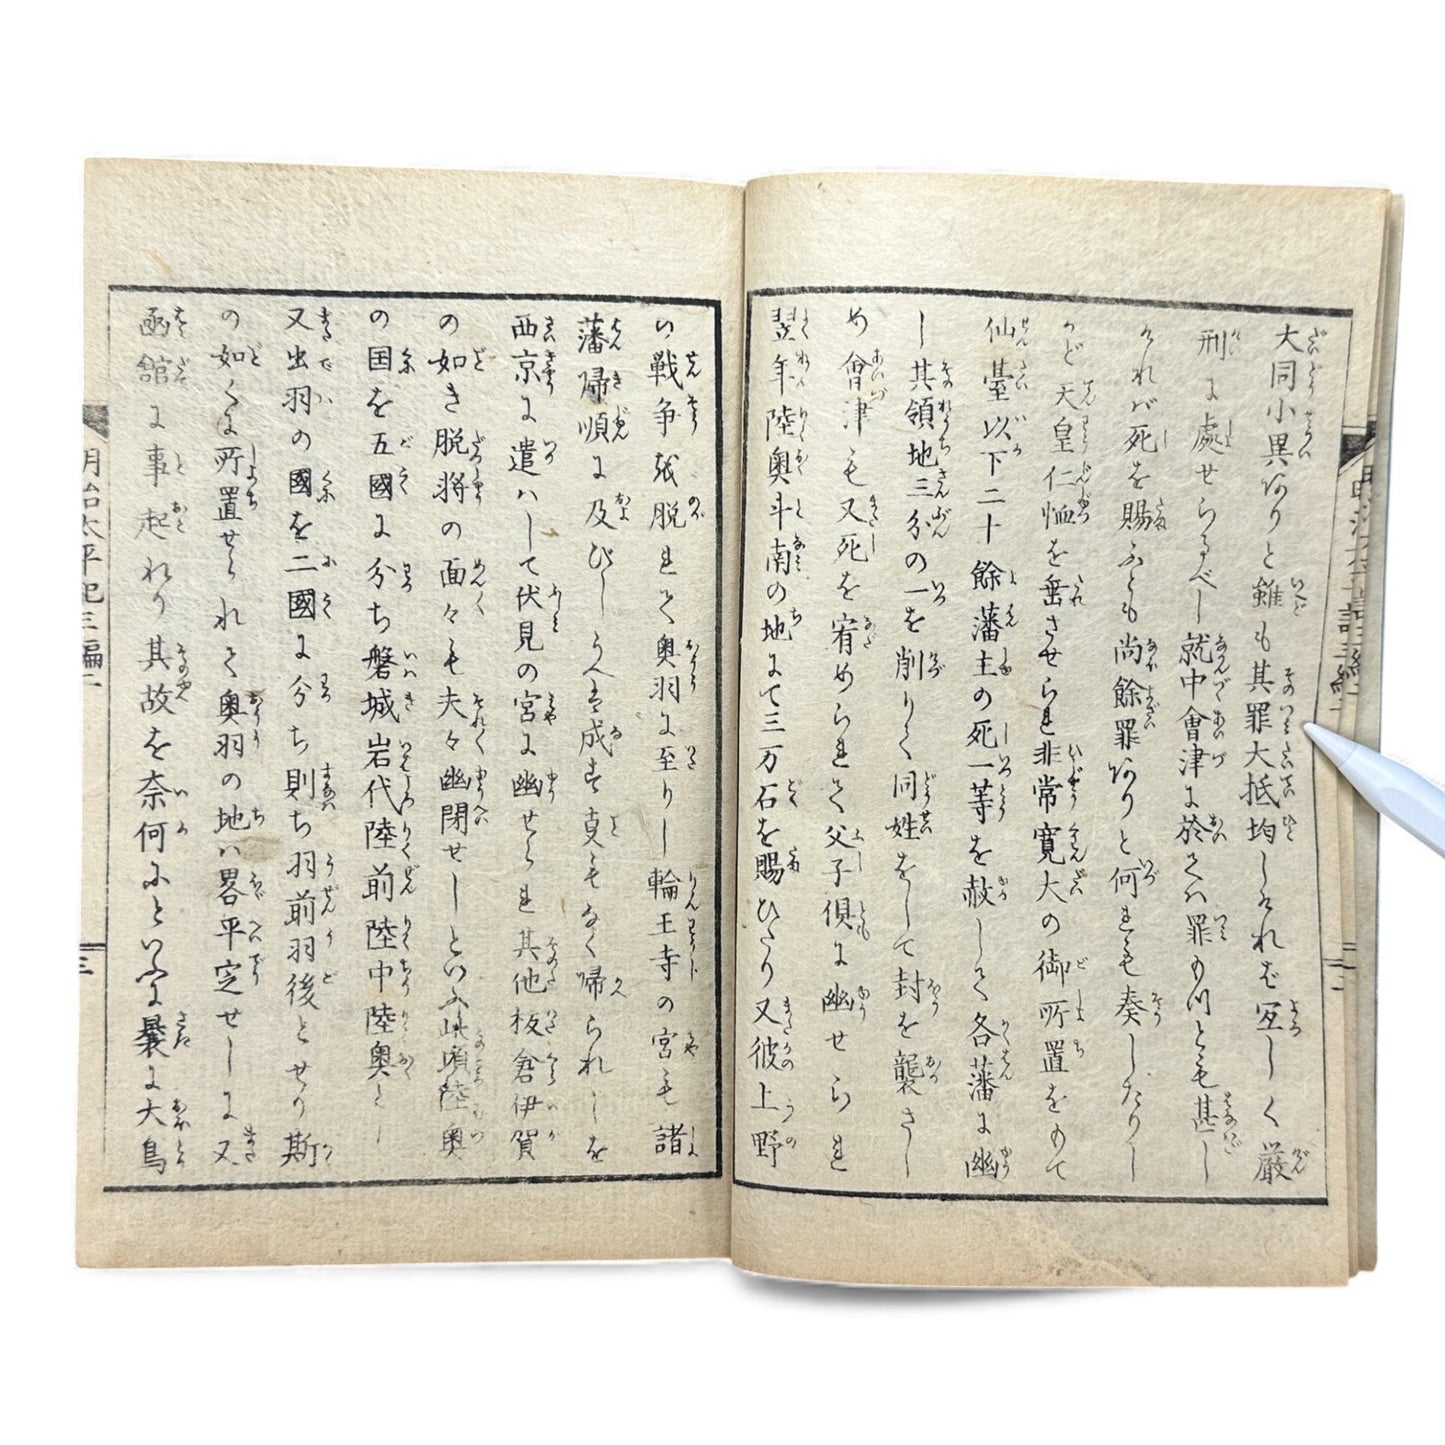 大同小異ありと雖も其罪大抵均しけれど宜しく厳
刑に處せらるべし就中會津に於ては罪のうちとも甚し
ければ死を賜ふとも尚餘罪ありと何れも奏したりし
かど天皇仁恤を垂させられ非常寛大の御所置をもて
仙臺以下二十餘藩主の死一等を赦して各藩に幽
し其領地三分の一を削りて同姓をして封を襲さし
め會津も又死を宥められて父子倶に幽せられ
翌年陸奥斗南の地にて三万石を賜ひたり又彼上野
の戦争を脱れて奥羽に至りし輪王寺の宮も諸
藩帰順に及びしうへは成す事もなく帰られしを
西京に遣はして伏見の宮に幽せられ其他板倉伊賀
の如き脱将の面々も夫々幽閉せしといふ此頃陸奥
の国を五國に分ち磐城岩代陸前陸中陸奥とし
又出羽の國を二國に分ち則ち羽前羽後とせり斯
の如くに所置せられて奥羽の地は畧平定せしに又
函館に事起れり其故を奈何にといふに曩に大鳥
明治太平記三編二
三